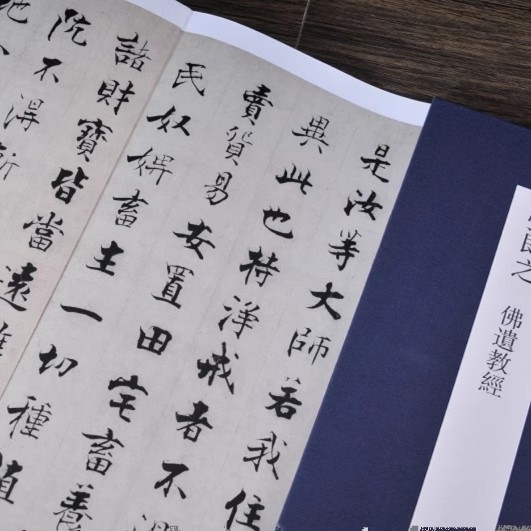 是汝等大師若我住
異此也持淨戒者不
賣貿易安置田宅畜養
民奴婢畜生一切種植
諸財寶皆當遠離
坑不得斬
之 佛遺教經